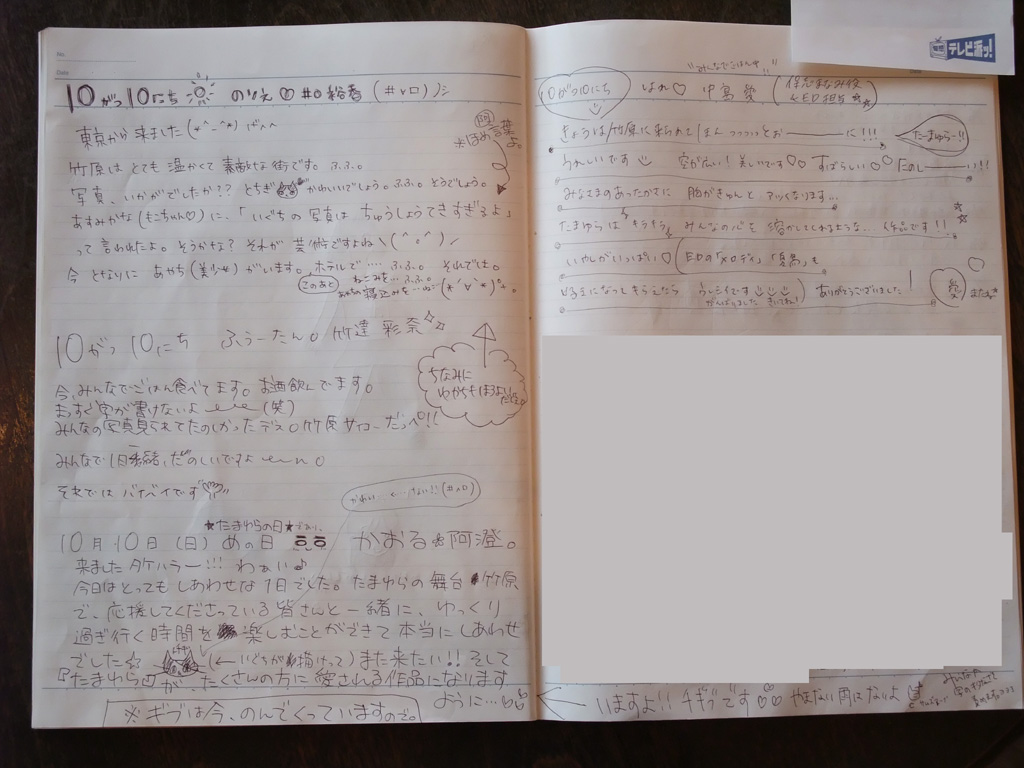 10がつ10にち のりえ♡#0給者(#▽ロ)ノシ
東京から来ました(*^-^*)
阿
※ほめ言葉よ。
竹原はとても温かくて素敵な街です。ふふ。
写真、いかがでしたか?? とちぎかわいいでしょう。ふふ。そうでしょう。
あすみかな(もこちゃん♡)に、「いぐちの写真はちゅうしょうてきすぎるよ」
って言われたよ。そうかな? それが芸術ですよね
今となりにあかち(美少女)がいます。ホテルで‥‥ふふ。それでは。
このあと
10がつ10にち ふぅーたん。竹達彩奈
今、みんなでごはん食べてます。お酒飲んでます。
まっすぐ字が書けないよ (笑)
みんなの写真見られてたのしかったデス。竹原サイコーだっぺ!!
みんなで1日一緒、たのしいですよ
それではバイバイです
ちなみに
わかちもほろよいだよ。
かわい…く…ない!!
★たまゆらの日★
10月10日(日)めの日 かおる 阿澄。
来ましたタケハラー!!! わぁい♪
今日はとってもしあわせな1日でした。たまゆらの舞台 竹原
で、応援してくださっている皆さんと一緒に、ゆっくり
過ぎ行く時間を 楽しむことができて本当にしあわせ
でした☆ (←いぐちが描けって)また来たい!!そして
『たまゆら』が、たくさんの方に愛される作品になります
ように…
※ギブは今、のんでくっていますので。
テレビ派ッ!
"みんなでごはん中"
10がつ10にち はれ♡ 中島愛 (保元まなみ役 &ED担当★★)
きょうは竹原に来られてほんっっっっっとぉ――――に!!!
たーまゆらー!!
うれしいです 空が広い!美しいです♡♡ すばらしい♡ たのし――い!!
みなさまのあったかさに 胸がきゅんと アツくなります…
たまゆらはキラキラ みんなの心を溶かしてくれるような…作品です!!
いやしがいっぱい♡(EDの「メロディ」「優風」も
好きになってもらえたら ウレシイです ありがとうございました!
がんばりました きいてね!
愛
またね
← いますよ!!チギブです♡♡ やまない雨はないよ